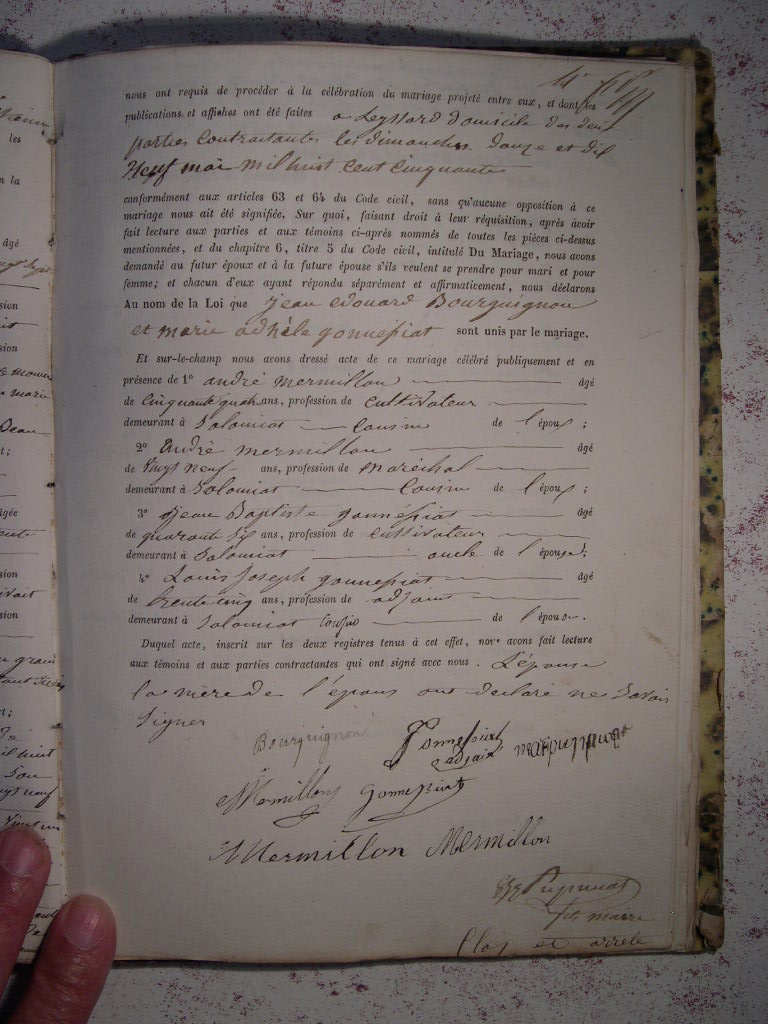 nous ont requis de procéder à la célébration du mariage projeté entre eux, et dont les
publications et affiches ont été faites a Leyssard domicile des deux
parties contractantes les dimanches douze et dix
Neuf mai mil huit cent cinquante
conformément aux articles 63 et 64 du Code civil, sans qu'aucune opposition à ce
mariage nous ait été signifiée. Sur quoi, faisant droit à leur réquisition, après avoir
fait lecture aux parties et aux témoins ci-après nommés de toutes les pièces ci-dessus
mentionnées, et du chapitre 6, titre 5 du Code civil, intitulé Du Mariage, nous avons
demandé au futur époux et à la future épouse s'ils veulent se prendre pour mari et pour
femme; et chacun d'eux ayant répondu séparément et affirmativement, nous déclarons
Au nom de la Loi que Jean edouard Bourguignon
et marie adhèle gonnessiat sont unis par le mariage.
Et sur-le-champ nous avons dressé acte de ce mariage célébré publiquement et en
présence de 1° andré mermillon âgé
de cinquante quatre ans, profession de cultivateur
demeurant à Solomiat cousin de l'époux;
2° André mermillon âgé
de vingt neuf ans, profession de maréchal
demeurant à Solomiat Cousin de l'époux;
3° Jean Baptiste gonnessiat âgé
de quarante six ans, profession de cultivateur
demeurant à Solomiat oncle de l'épouse;
4° Louis Joseph gonnessiat âgé
de trente cinq ans, profession de adjoint
demeurant à Solomiat cousin de l'épouse.
Duquel acte, inscrit sur les deux registres tenus à cet effet, nous avons fait lecture
aux témoins et aux parties contractantes qui ont signé avec nous. L'épouse
la mère de l'épous ont declaré ne savoir
signer
Bourguignon Gonnessiat
adjoint
Mermillon gonnessiat
Mermillon Mermillon
maire
Clos et arrêté